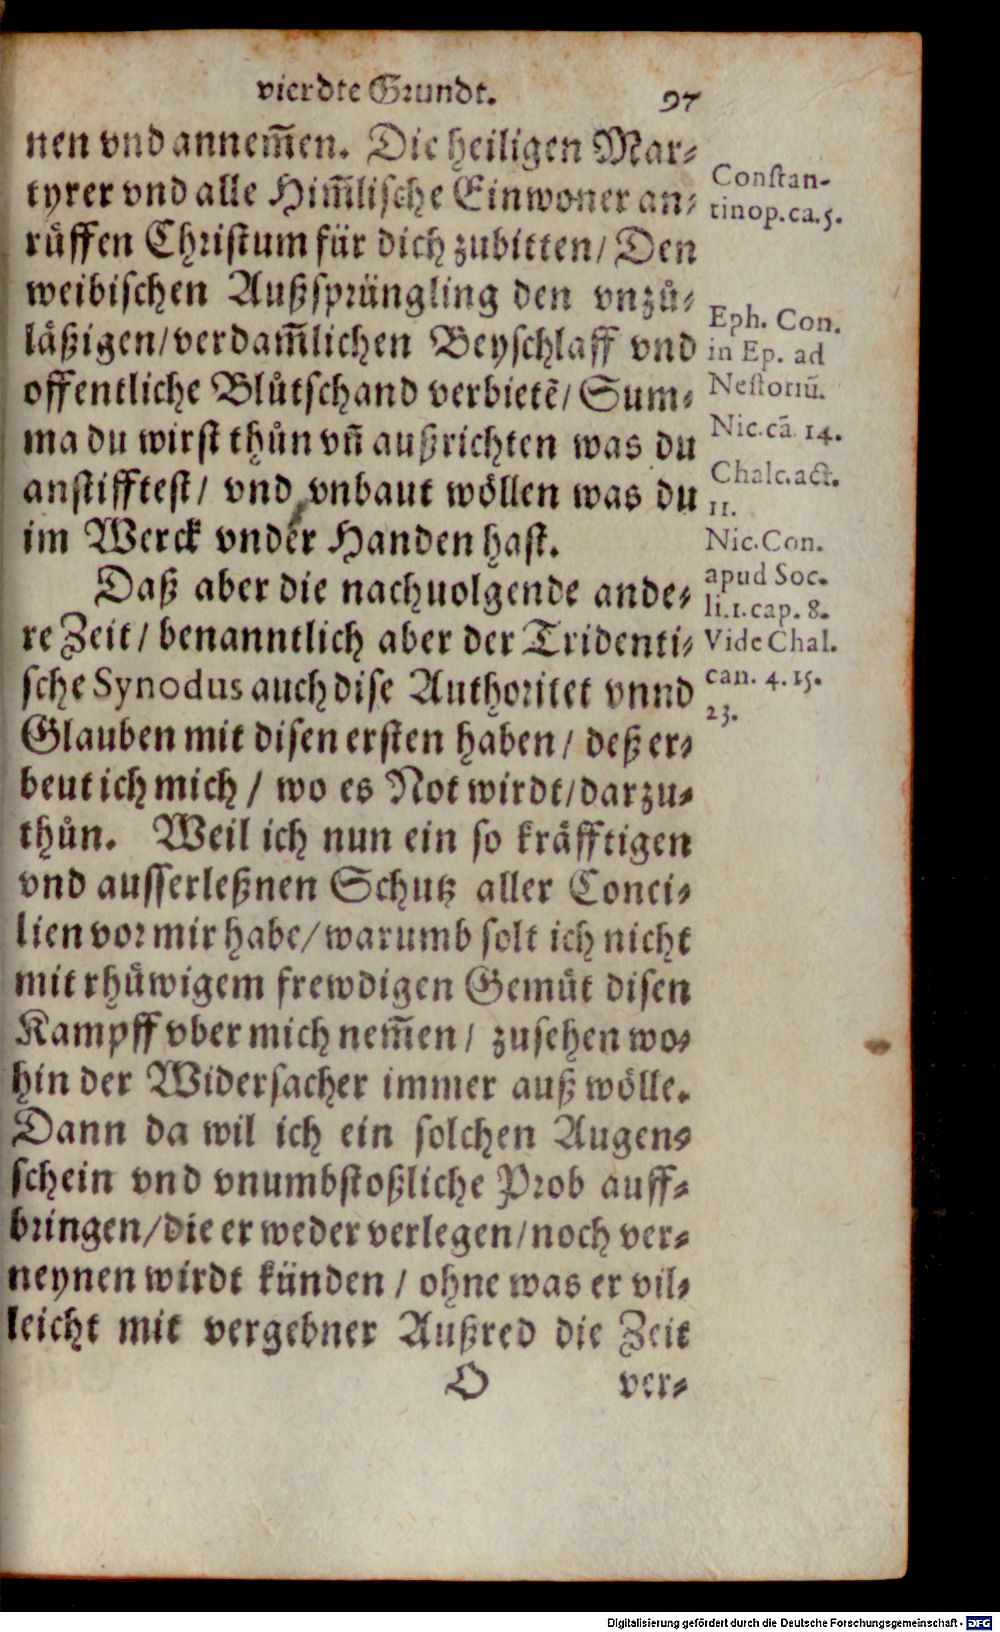 vierdte Grundt. 97
nen vnd annem̃en. Die heiligen Mar-
tyrer vnd alle Him̃lische Einwoner an-
růffen Christum für dich zubitten/ Den
weibischen Außsprüngling den vnzů-
läßigen/ verdam̃lichen Beyschlaff vnd
offentliche Blůtschand verbietẽ/ Sum-
ma du wirst thůn vñ außrichten was du
anstifftest/ vnd vnbaut wöllen was du
im Werck vnder Handen hast.
Daß aber die nachuolgende ande-
re Zeit/ benanntlich aber der Tridenti-
sche Synodus auch dise Authoritet vnnd
Glauben mit disen ersten haben/ deß er-
beut ich mich/ wo es Not wirdt/ darzu-
thůn. Weil ich nun ein so kräfftigen
vnd ausserleßnen Schutz aller Conci-
lien vor mir habe/ warumb solt ich nicht
mit rhüwigem frewdigen Gemüt disen
Kampff vber mich nem̃en/ zusehen wo-
hin der Widersacher immer auß wölle.
Dann da wil ich ein solchen Augen-
schein vnd vnumbstoßliche Prob auff-
bringen/ die er weder verlegen/ noch ver-
neynen wirdt künden/ ohne was er vil-
leicht mit vergebner Außred die Zeit
O ver-
Constan-
tinop.ca.5.
Eph. Con.
in Ep. ad
Nestoriũ.
Nic.cã. 14.
Chalc.act.
11.
Nic.Con.
apud Soc.
li.1.cap. 8.
Vide Chal.
can. 4. 15.
23.
Digitalisierung gefördert durch die Deutsche Forschungsgemeinschaft - DFG